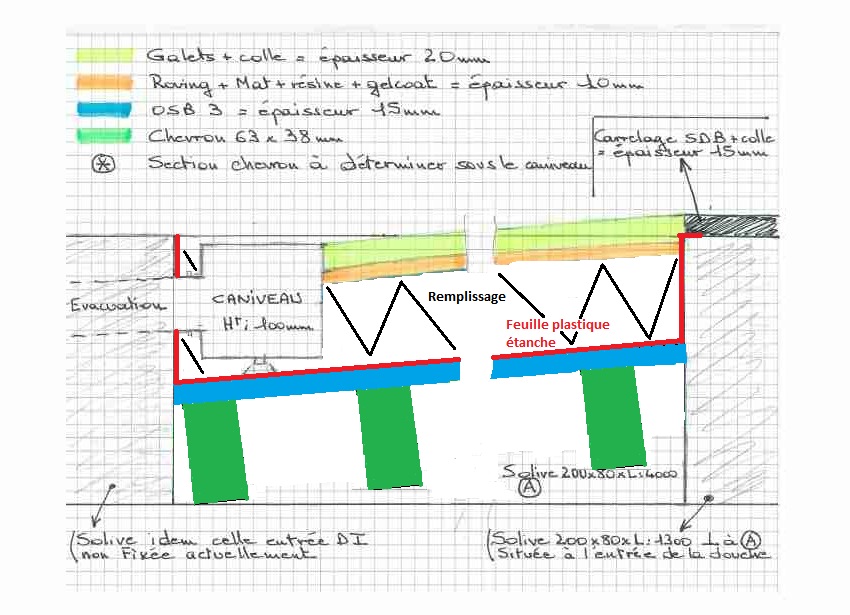 Galets + colle = épaisseur 20mm
Roving + Mat + résine + gelcoat = épaisseur 10mm
OSB 3 = épaisseur 15mm
Chevron 63 x 38mm
* Section chevron à déterminer sous le caniveau
Carrelage SDB + colle
= épaisseur 15mm
Evacuation
CANIVEAU
Hr: 100mm
Remplissage
Feuille plastique
étanche
Solive 200x80xL:4000
A
(Solive idem celle entrée DI
non Fixée actuellement
(Solive 200x80xL:1300 ⊥ à A
Située à l'entrée de la douche